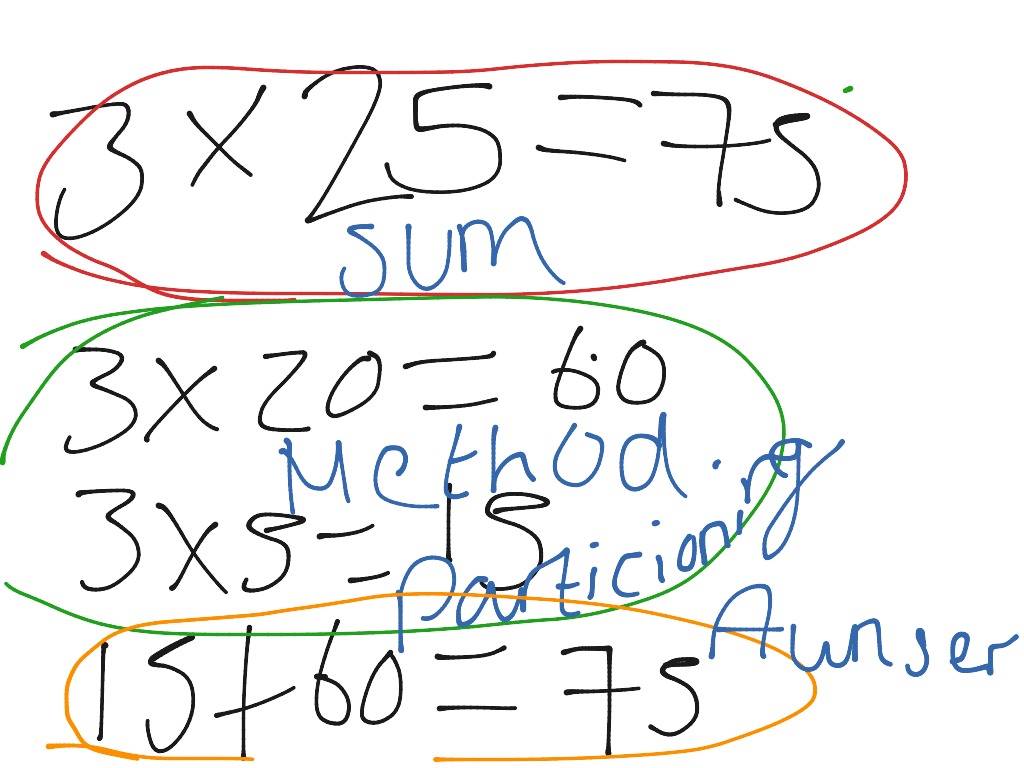 3 × 25 = 75
sum
3 × 20 = 60
Method
3 × 5 = 15
particioning
15 + 60 = 75
Aunser